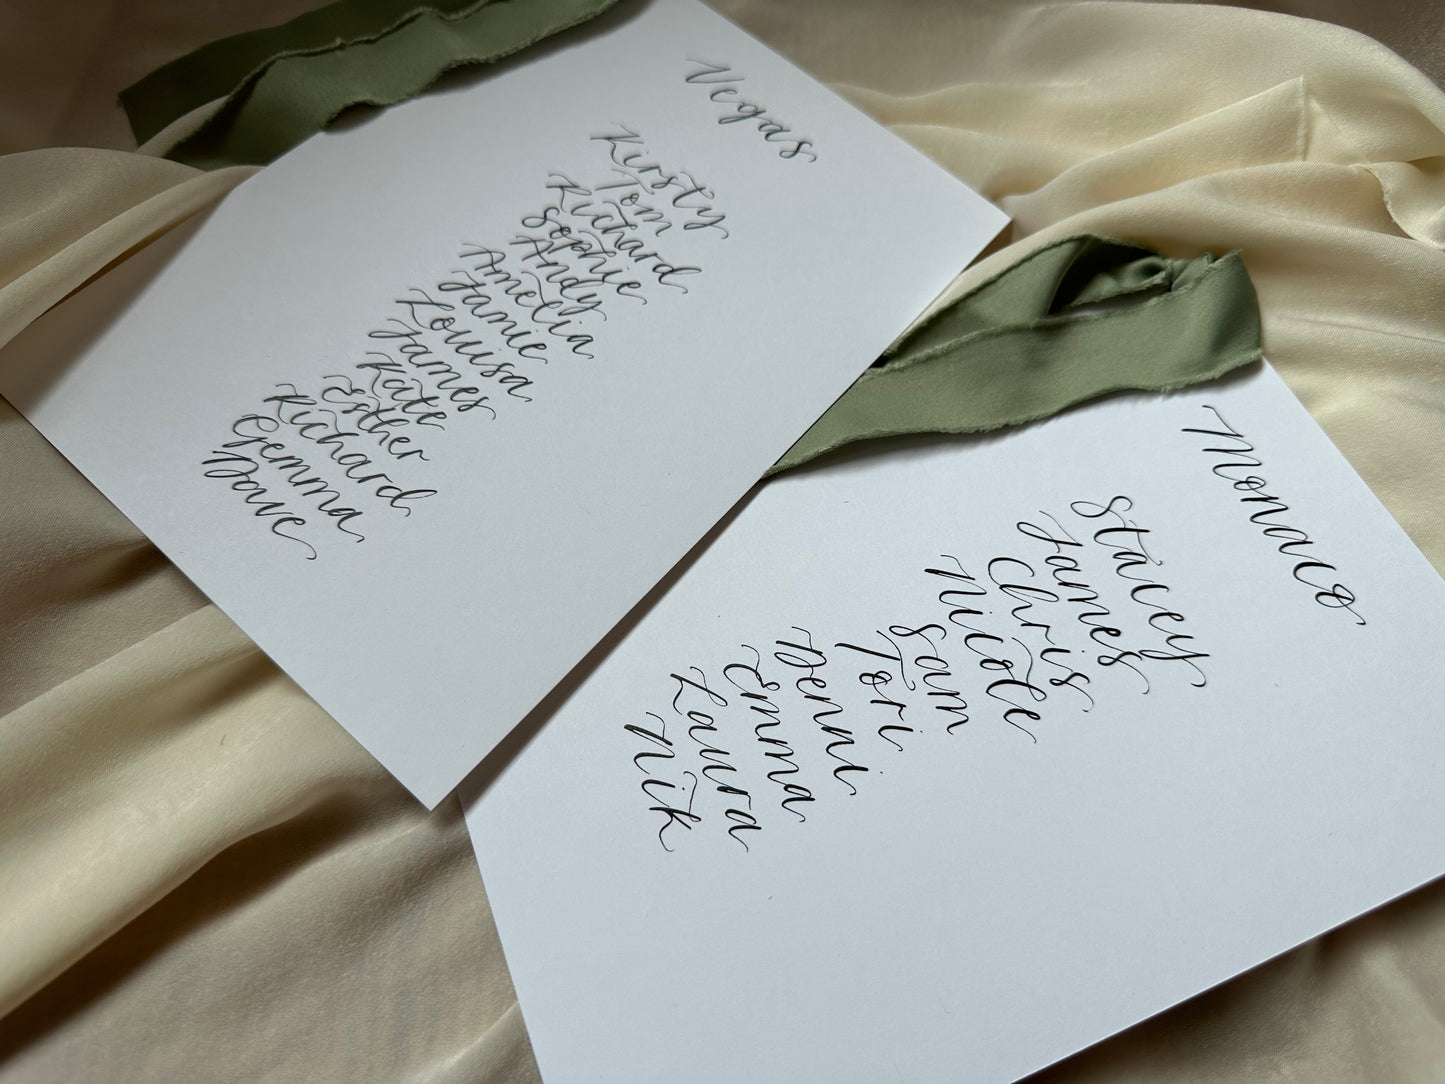 Vegas
Kirsty
Tom
Richard
Sophie
Andy
Amelia
Jamie
Louisa
James
Kate
Esther
Richard
Gemma
Dave
Monaco
Stacey
James
Chris
Nicole
Sam
Tori
Denni
Emma
Laura
Nik